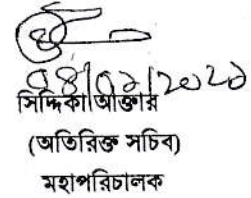 ০৪/০১/২০২১
সিদ্দিকা আক্তার
(অতিরিক্ত সচিব)
মহাপরিচালক